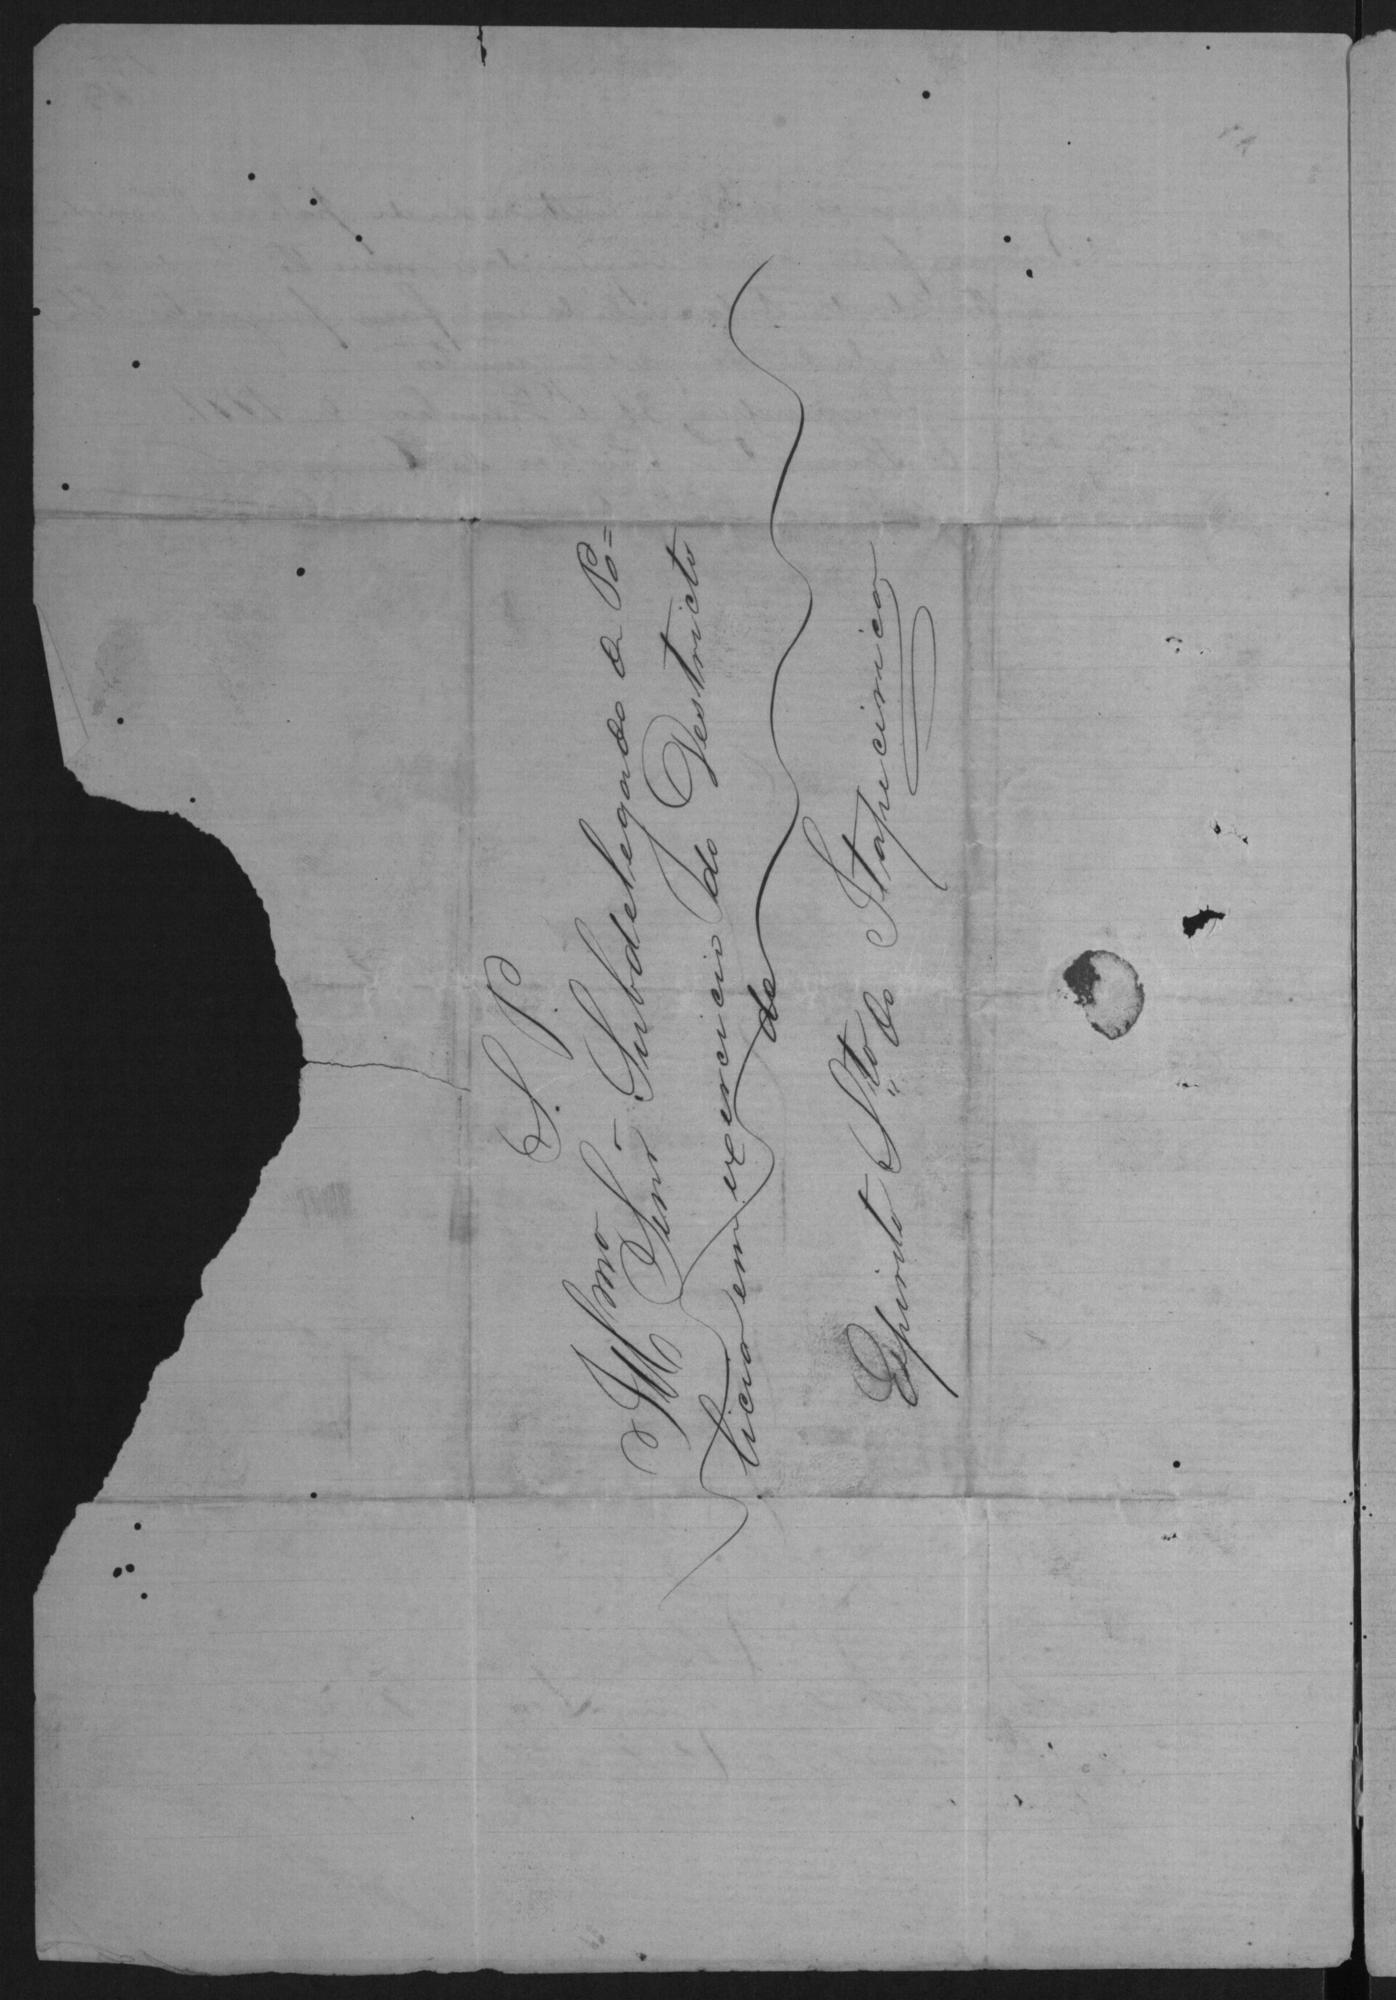 S. P.
Illmo Senr Subdelegado de Po=
licia em exercicio do Destricto
de
Espirito Sto do Itapecirica